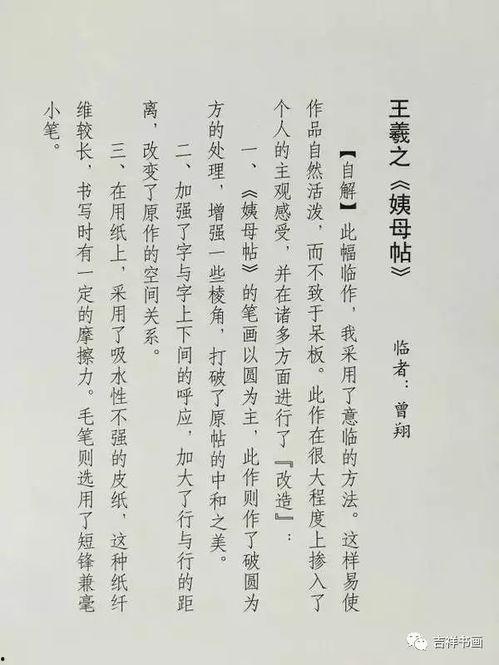 王羲之《姨母帖》
临者：曾翔
【自解】此幅临作，我采用了意临的方法。这样易使
作品自然活泼，而不致于呆板。此作在很大程度上掺入了
个人的主观感受，并在诸多方面进行了『改造』：
一、《姨母帖》的笔画以圆为主，此作则作了破圆为
方的处理，增强一些棱角，打破了原帖的中和之美。
二、加强了字与字上下间的呼应，加大了行与行的距
离，改变了原作的空间关系。
三、在用纸上，采用了吸水性不强的皮纸，这种纸纤
维较长，书写时有一定的摩擦力。毛笔则选用了短锋兼毫
小笔。
吉祥书画